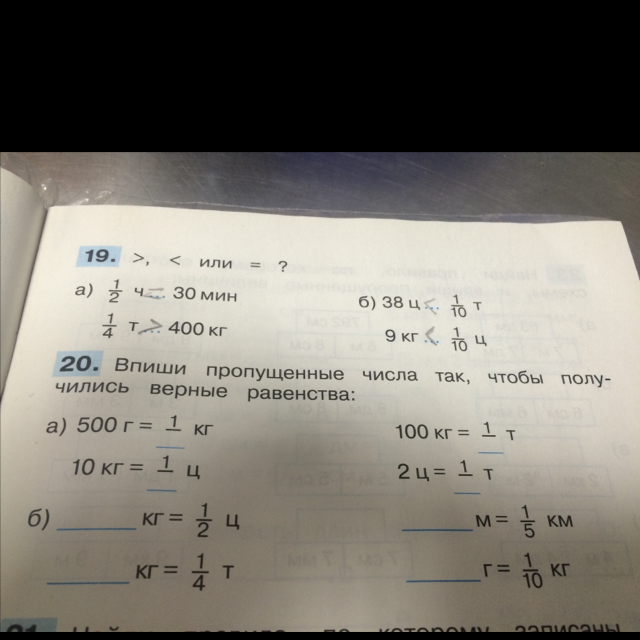 19. >, < или = ?
а) 1/2 ч = 30 мин
б) 38 ц < 1/10 т
1/4 т > 400 кг
9 кг < 1/10 ц
20. Впиши пропущенные числа так, чтобы полу-
чились верные равенства:
а) 500 г = 1/__ кг
100 кг = 1/__ т
10 кг = 1/__ ц
2 ц = 1/__ т
б) ______ кг = 1/2 ц
______ м = 1/5 км
______ кг = 1/4 т
______ г = 1/10 кг
21.